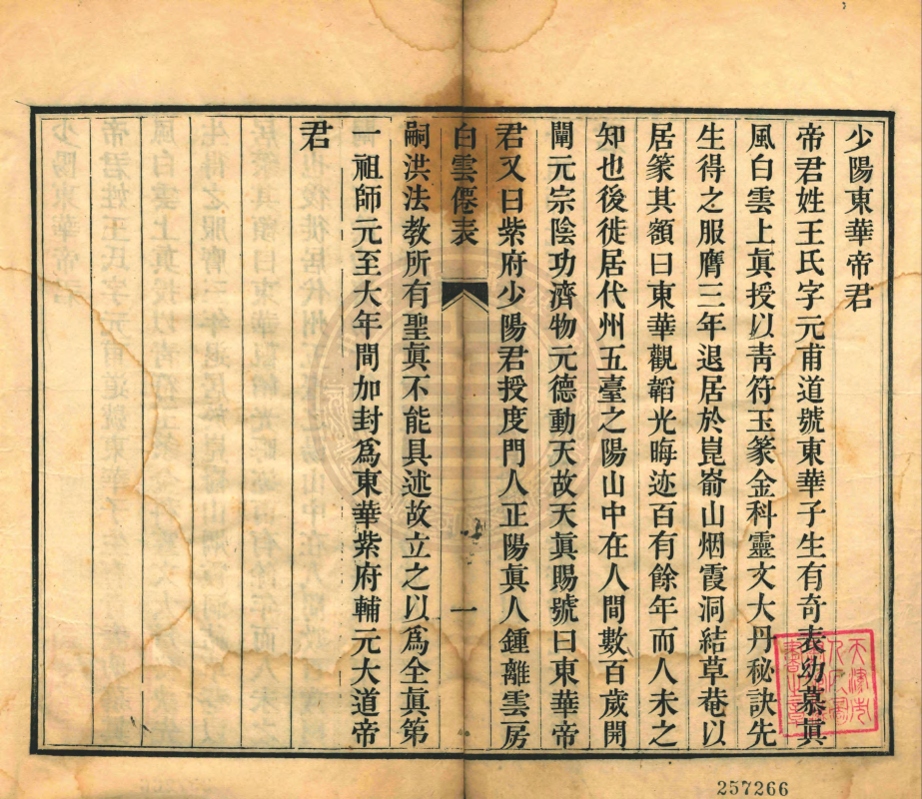 少陽東華帝君
帝君姓王氏字元甫道號東華子生有奇表幼慕眞
風白雲上眞授以靑符玉篆金科靈文大丹秘訣先
生得之服膺三年退居於崑嵛山烟霞洞結草菴以
居篆其額曰東華觀韜光晦迹百有餘年而人未之
知也後徙居代州五臺之陽山中在人間數百歲開
闡元宗陰功濟物元德動天故天眞賜號曰東華帝
君又曰紫府少陽君授度門人正陽眞人鍾離雲房
白雲僊表
一
嗣洪法教所有聖眞不能具述故立之以爲全眞第
一祖師元至大年間加封爲東華紫府輔元大道帝
君
257266